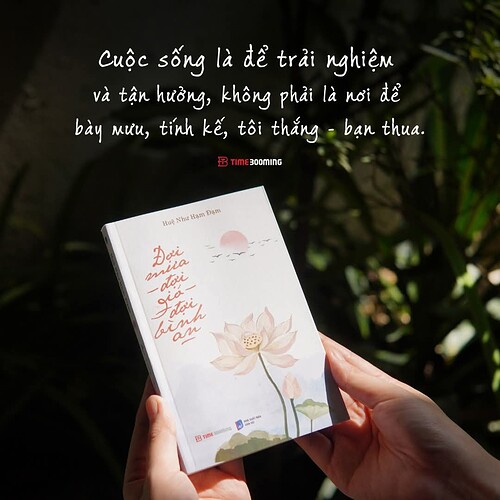 Cuộc sống là để trải nghiệm
và tận hưởng, không phải là nơi để
bày mưu, tính kế, tôi thắng - bạn thua.
TIMEBOOMING
Huệ Như Hạm Đạm
Đợi
mưa
— đợi
gió —
đợi
bình
an
TIMEBOOMING